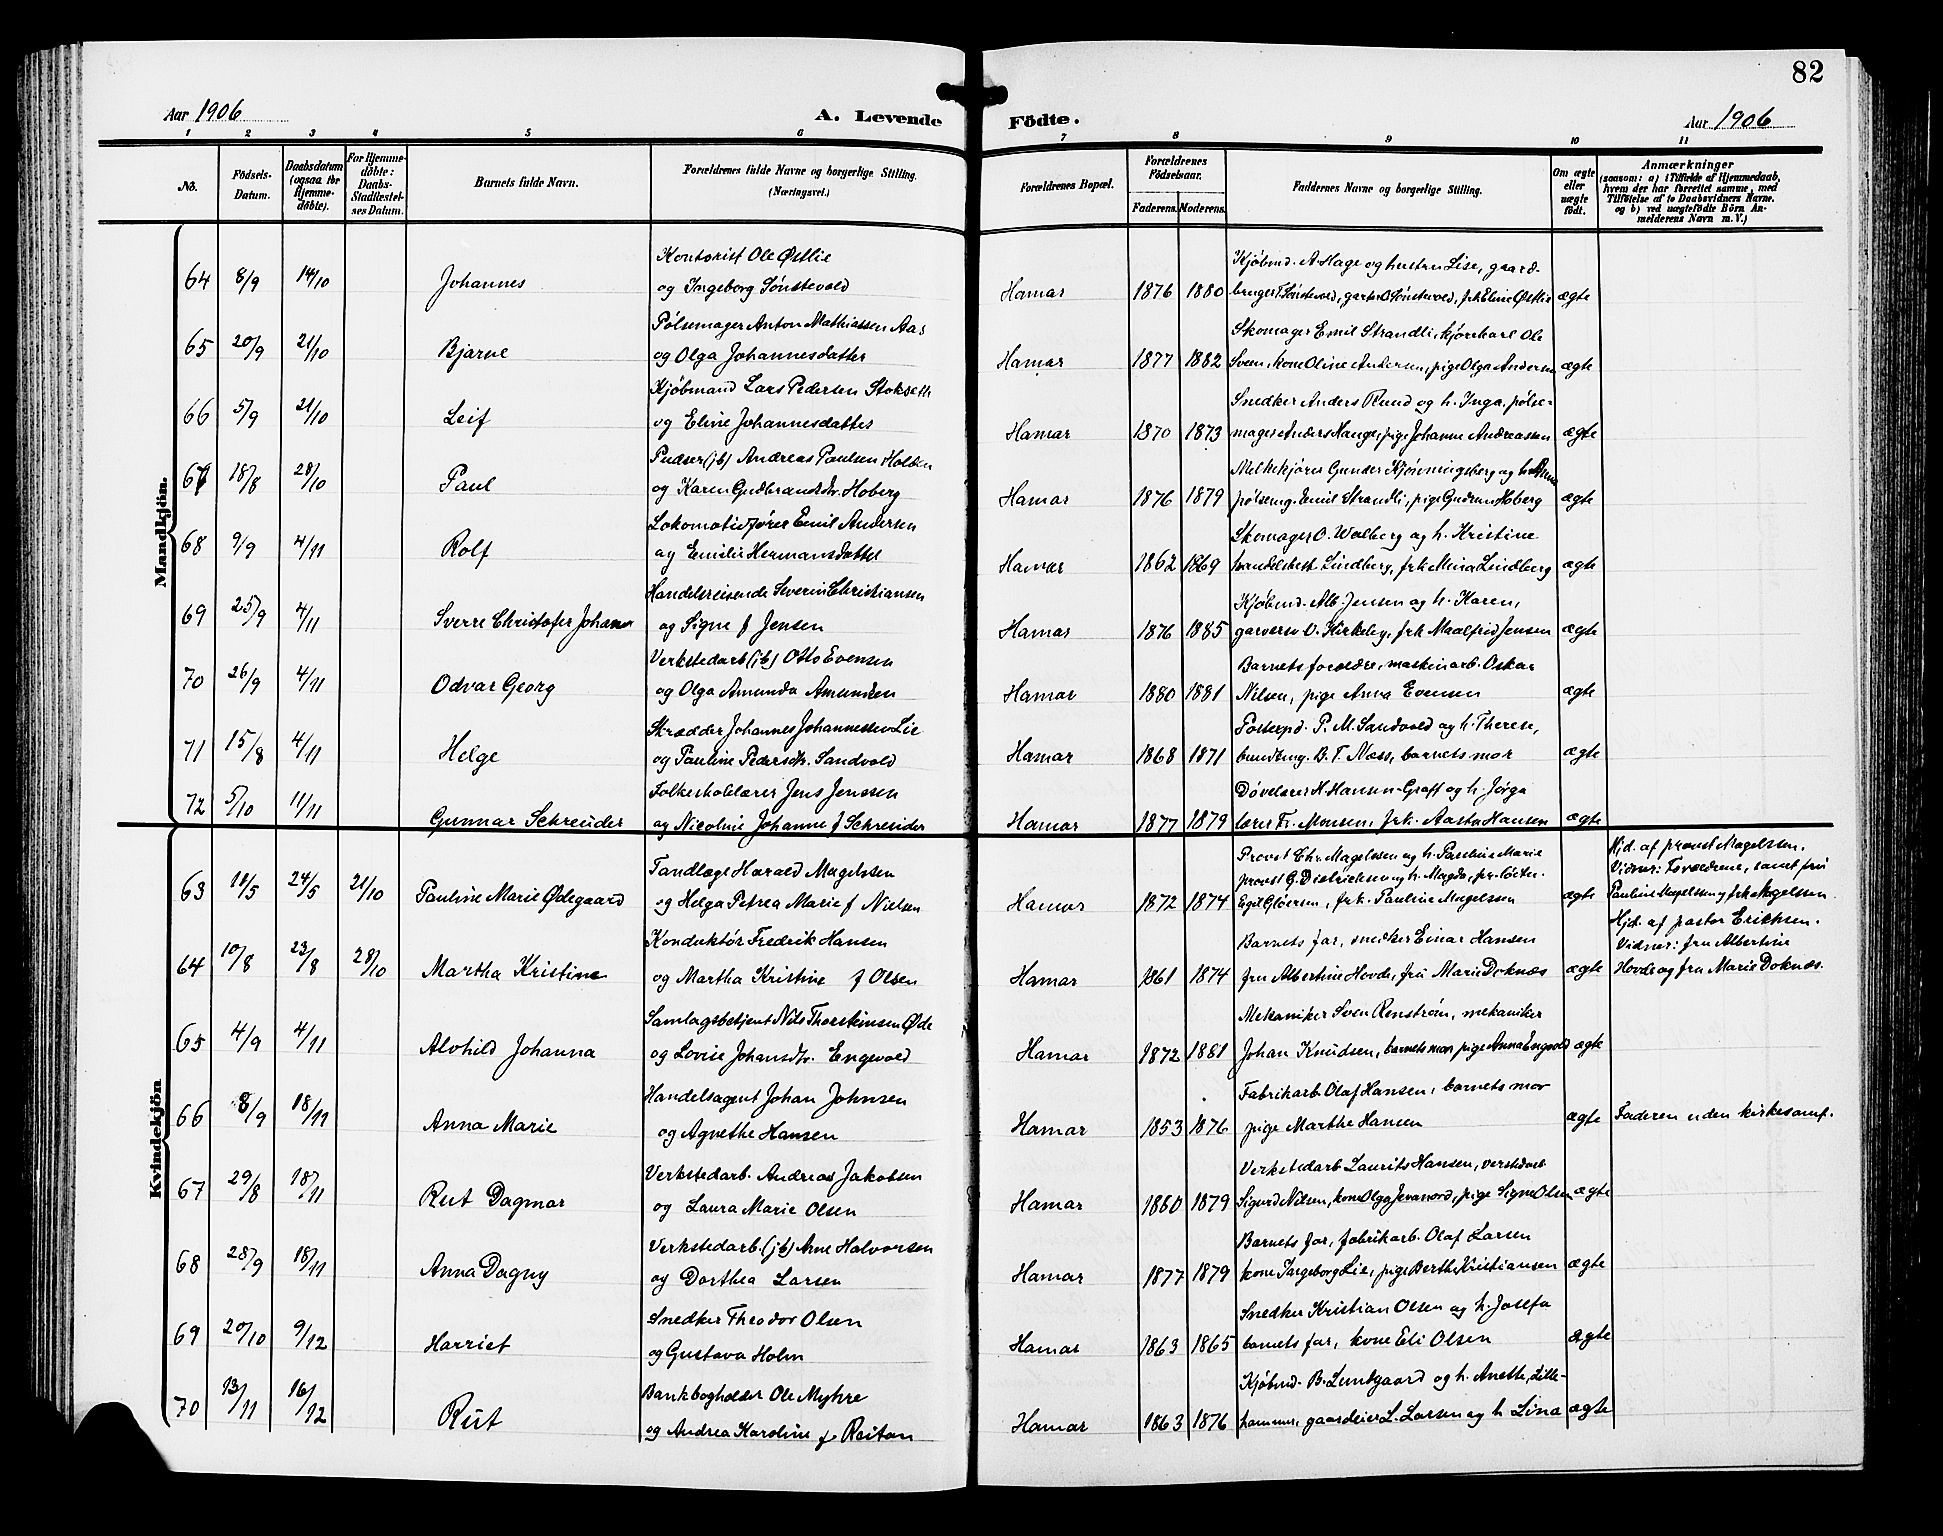 82
Aar 1906 A. Levende Födte. Aar 1906
1 2 3 4 5 6 7 8 9 10 11
No. Födsels-Datum. Daabsdatum (ogsaa for Hjemmedöbte). For Hjemmedöbte: Daabs-Stadfæstelses Datum. Barnets fulde Navn. Forældrenes fulde Navne og borgerlige Stilling. (Næringsvei.) Forældrenes Bopæl. Forældrenes Födselsaar. Faderens. Moderens. Faddernes Navne og borgerlige Stilling. Om ægte eller uægte födt. Anmærkninger (saasom: a) i Tilfælde af Hjemmedaab, hvem der har forrettet samme, med Tilföielse af to Daabsvidners Navne, og b) ved uægtefödte Börn Anmelderens Navn m. V.)
Mandkjön.
Kontorist Ole Østlie Kjøbmd. A. Hage og hustru Lise, gaard-
64 8/9 14/10 Johannes og Ingeborg Sønstevold Hamar 1876 1880 bruger T. Sønstevold, gartn. O. Sønstevold, frk. Eline Østlie ægte
Pølsemager Anton Mathiassen Aas Skomager Emil Strandli, kjørekarl Ole
65 20/9 21/10 Bjarne og Olga Johannesdatter Hamar 1877 1882 Sven, kone Oline Andersen, pige Olga Andersen ægte
Kjøbmand Lars Pedersen Stokseth Snedker Anders Rund og h. Inga, pølse-
66 5/9 21/10 Leif og Eline Johannesdatter Hamar 1870 1873 mager Anders Hauge, pige Johanne Andreassen ægte
Pudser (jb) Andreas Paulsen Holden Melkekjører Gunder Kjønningsberg og h.
67 18/8 28/10 Paul og Karen Gudbrandsdr. Hoberg Hamar 1876 1879 pølsemg. Emil Strandli, pige Gudrun Hoberg ægte
Lokomotivfører Emil Andersen Skomager O. Walberg og h. Kristine
68 9/9 4/11 Rolf og Emilie Hermansdatter Hamar 1862 1869 handelsbest. Lindberg, frk. Mina Lindberg ægte
Handelsreisende Severin Christiansen Kjøbmd. Alb. Jensen og h. Karen,
69 25/9 4/11 Sverre Christofer Johannes og Signe f Jensen Hamar 1876 1885 garversv. O. Kirkeby, frk. Maalfrid Jensen ægte
Verkstedarb (jb) Otto Evensen Barnets forældre, maskinarb. Oskar
70 26/9 4/11 Odvar Georg og Olga Amunda Amundsen Hamar 1880 1881 Nilsen, pige Anna Evensen ægte
Skrædder Johannes Johannessen Lie Postexpd. P. M. Sandvold og h. Therese,
71 15/8 4/11 Helge og Pauline Pedersdr. Sandvold Hamar 1868 1871 bundtmg. B. T. Næss, barnets mor ægte
Folkeskolelærer Jens Jenssen Døvelærer H. Hansen-Graff og h. Jørga
72 5/10 11/11 Gunnar Schreuder og Nicoline Johanne f Schreuder Hamar 1877 1879 lærer Fr. Monsen, frk. Aasta Hansen ægte
Kvindekjön
Tandlæge Harald Magelssen Provst Chr. Magelssen og h. Pauline Marie Hjd. af provst Magelssen.
provst G. Diedrichsen og h. Magda, Vidner: Forældrene, samt fru
63 11/5 24/5 21/10 Pauline Marie Ødegaard og Helga Petrea Marie f Nielsen Hamar 1872 1874 Egil Gløersen, frk. Pauline Magelssen ægte Pauline Magelssen og frk. Magelssen.
Konduktør Fredrik Hansen Barnets far, snedker Einar Hansen Hjd. af pastor Erichsen. Vidner: fru Albertine
64 10/8 23/8 28/10 Martha Kristine og Martha Kristine f Olsen Hamar 1861 1874 fru Albertine Hovde, fru Marie Doknæs ægte Hovde og fru Marie Doknæs.
Samlagsbetjent Nils Thorstensen Øde Mekaniker Sven Renstrøm, mekaniker
65 4/9 4/11 Alvhild Johanna og Lovise Johansdr. Engevold Hamar 1872 1881 Johan Knudsen, barnets mor, pige Anna Engevold ægte
Handelsagent Johan Johnsen Fabrikarb. Olaf Hansen, barnets mor
66 8/9 18/11 Anna Marie og Agnethe Hansen Hamar 1853 1876 pige Marthe Hansen ægte Faderen uden kirkesamf.
Verkstedarb. Andreas Jakobsen Verkstedarb. Laurits Hansen, verkstedarb.
67 29/8 18/11 Rut Dagmar og Laura Marie Olsen Hamar 1880 1879 Sigurd Nilsen, kone Olga Jevanord, pige Signe Olsen ægte
Verkstedarb. (jb) Arne Halvorsen Barnets far, fabrikarb. Olaf Larsen
68 28/9 18/11 Anna Dagny og Dorthea Larsen Hamar 1877 1879 kone Ingeborg Lie, pige Berthe Kristiansen ægte
Snedker Theodor Olsen Snedker Kristian Olsen og h. Josefa
69 20/10 9/12 Harriet og Gustava Holm Hamar 1863 1865 barnets far, kone Eli Olsen ægte
Bankbogholder Ole Myhre Kjøbmd. B. Lundgaard og h. Anette, Lille-
70 13/11 16/12 Rut og Andrea Karoline f. Reitan Hamar 1863 1876 hammer, gaardeier L. Larsen og h. Lina ægte